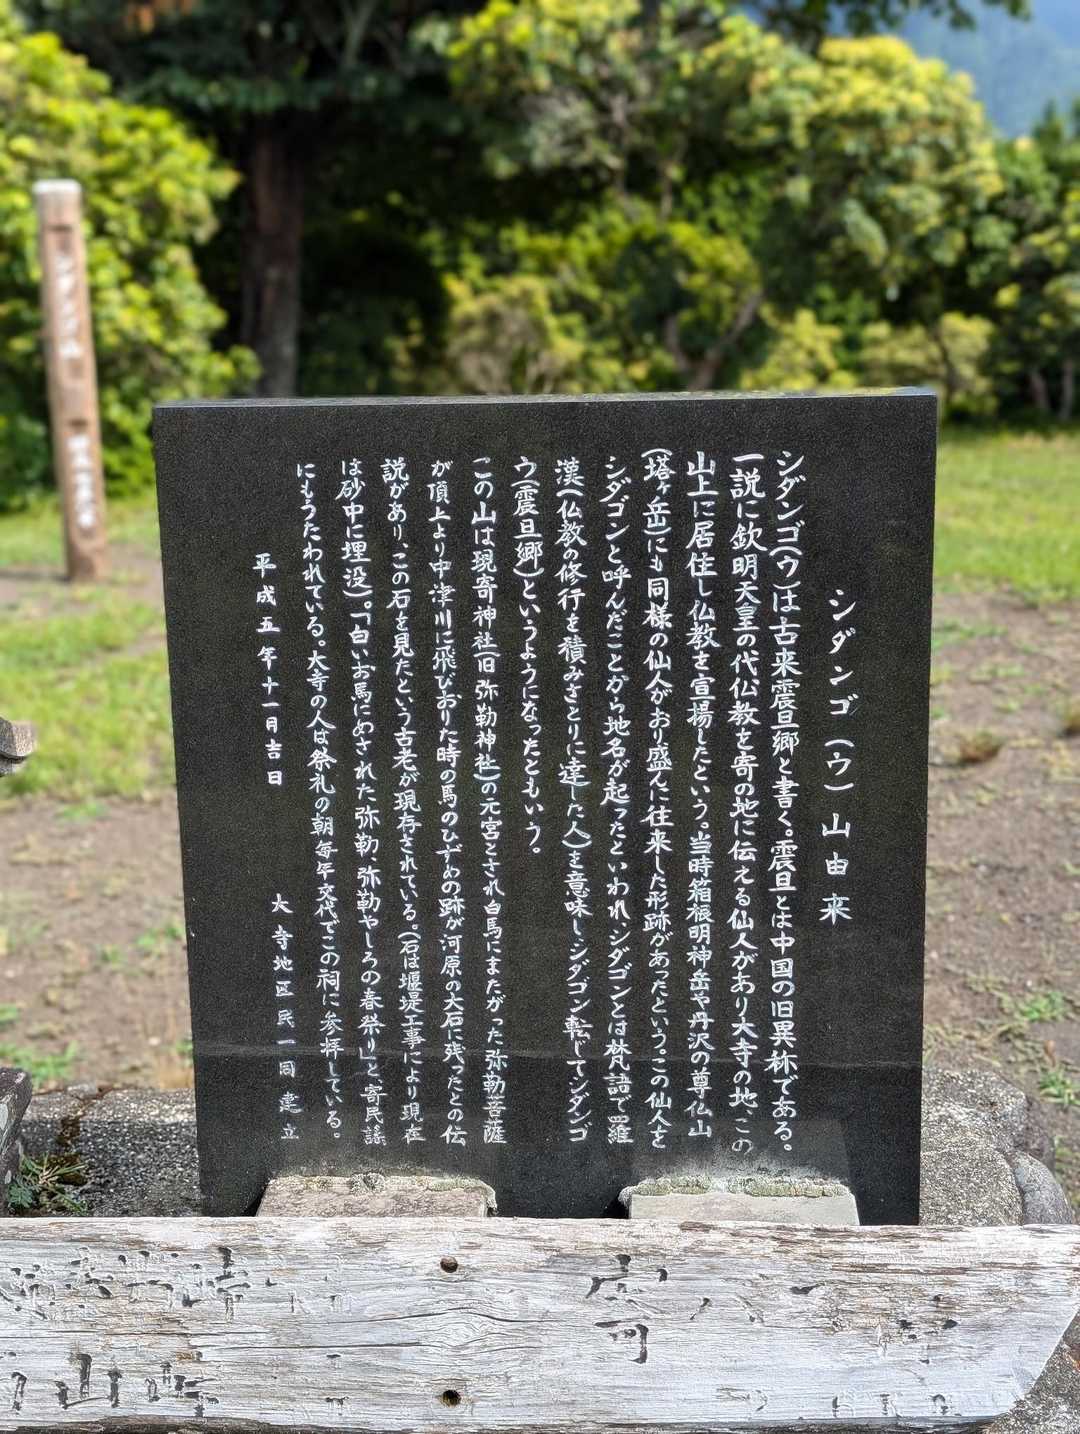 シダンゴ(ウ)山由来
シダンゴ(ウ)は古来震旦郷と書く。震旦とは中国の旧異称である。
一説に欽明天皇の代仏教を寄の地に伝える仙人があり大寺の地、この
山上に居住し仏教を宣揚したという。当時箱根明神岳や丹沢の尊仏山
(塔ヶ岳)にも同様の仙人がおり盛んに往来した形跡があったという。この仙人を
シダゴンと呼んだことから地名が起ったといわれ、シダゴンとは梵語で羅
漢(仏教の修行を積みさとりに達した人)を意味し、シダゴン転じてシダンゴ
ウ(震旦郷)というようになったともいう。
この山は現寄神社(旧弥勒神社)の元宮とされ白馬にまたがった弥勒菩薩
が頂上より中津川に飛びおりた時の馬のひずめの跡が河原の大石に残ったとの伝
説があり、この石を見たという古老が現存されている。(石は堰堤工事により現在
は砂中に埋没)。「白いお馬にめされた弥勒、弥勒やしろの春祭り」と、寄民謡
にもうたわれている。大寺の人は祭礼の朝毎年交代でこの祠に参拝している。
平成五年十一月吉日
大寺地区民一同建立
シダンゴ山
寄
山峠